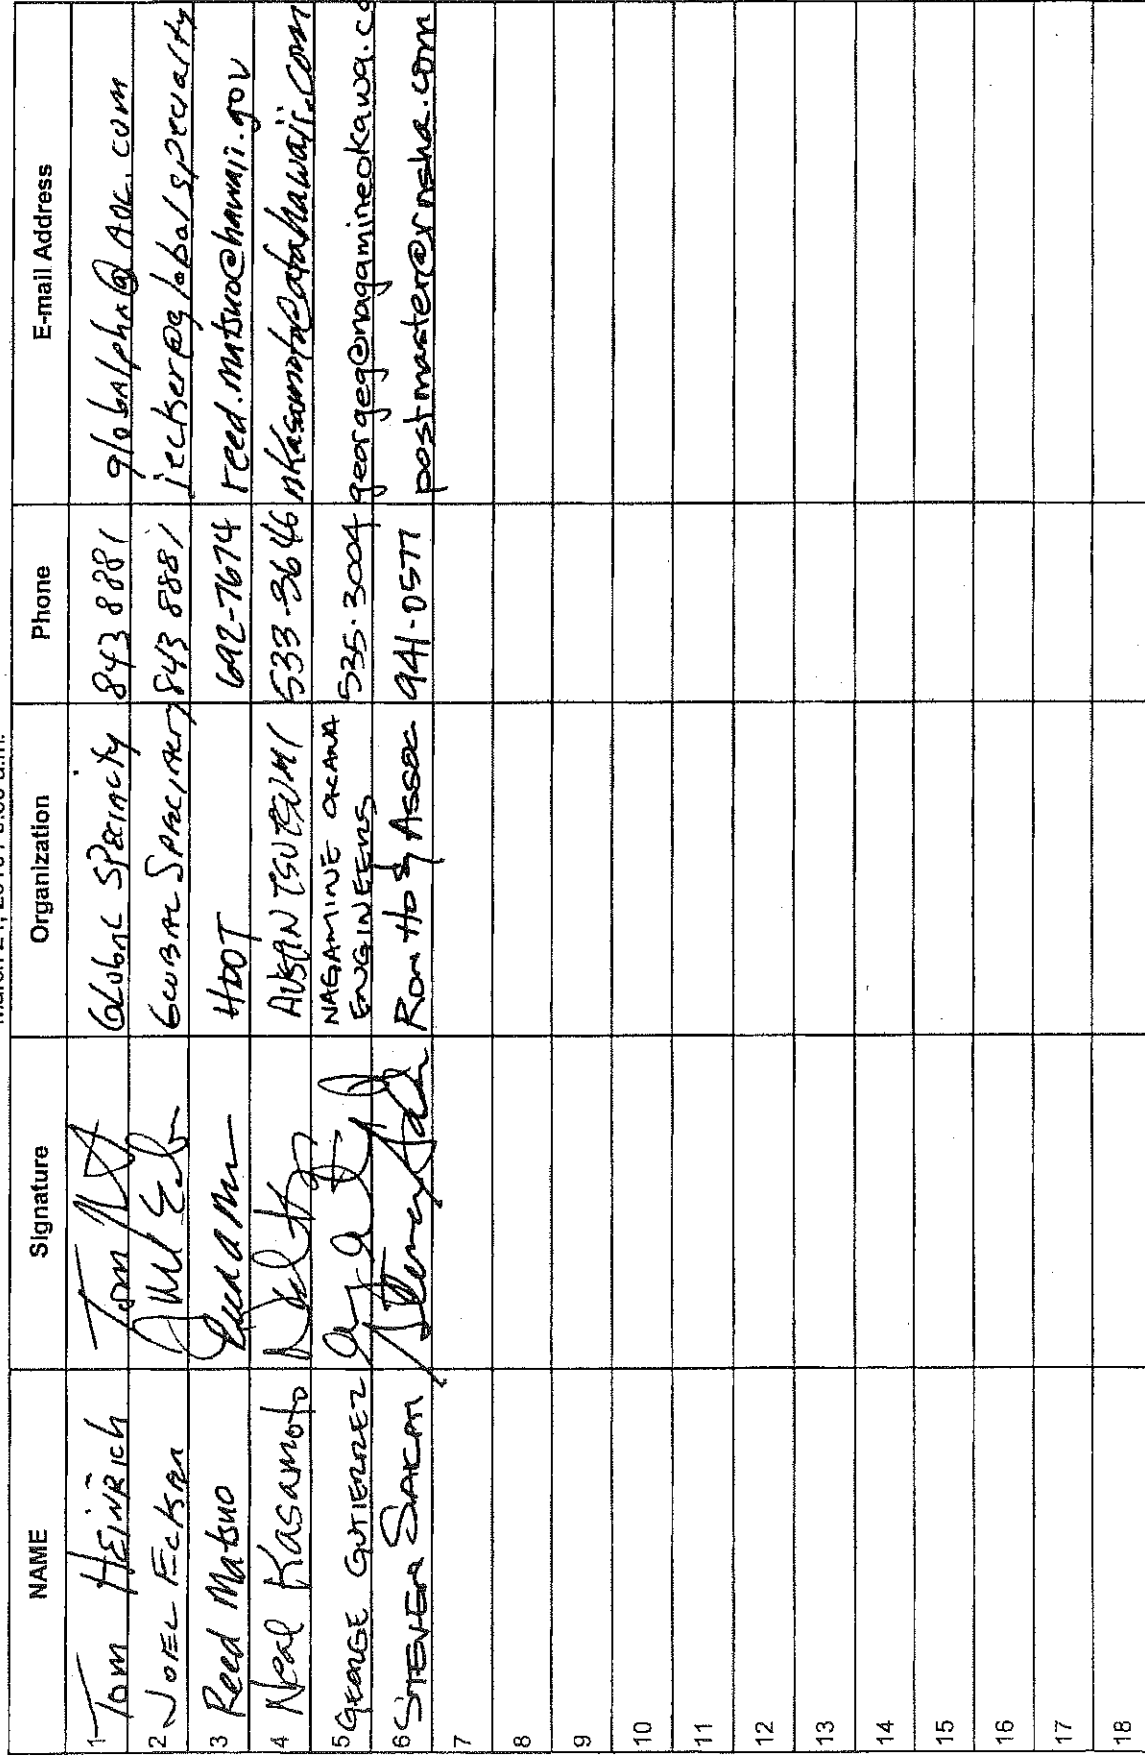 NAME Signature Organization Phone E-mail Address
1 Tom HEINRICH GLOBAL SPECIALTY 843 8881 globalphx@AOL.com
2 JOEL ECKSER GLOBAL SPECIALTY 843 8881 jeckser@globalspecialty
3 Reed Matsuo HDOT 692-7674 reed.matsuo@hawaii.gov
4 Neal Kasamoto AUSTIN TSUTSUMI 533-3646 nkasamoto@atahawaii.com
5 GEORGE GUTIERREZ NAGAMINE OKAWA
ENGINEERS 535.3004 georgeg@nagamineokawa.co
6 STEVEN Ron Ho & Assoc 941-0577 postmaster@rnsha.com
7
8
9
10
11
12
13
14
15
16
17
18